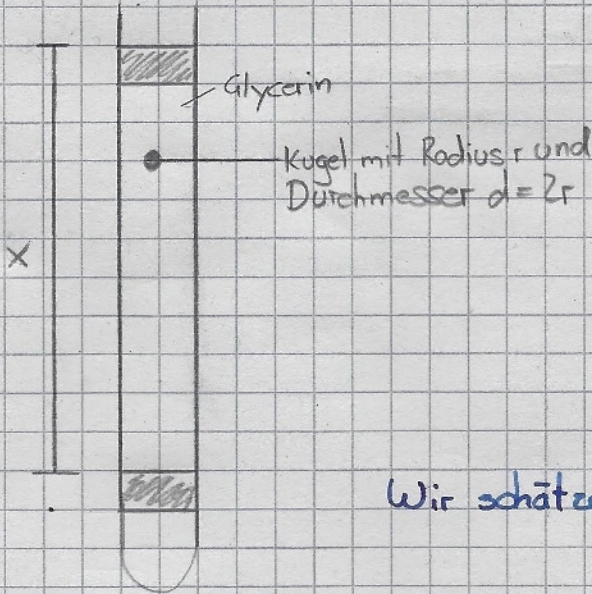 Glycerin
Kugel mit Radius r und
Durchmesser d = 2r
x
Wir schätze